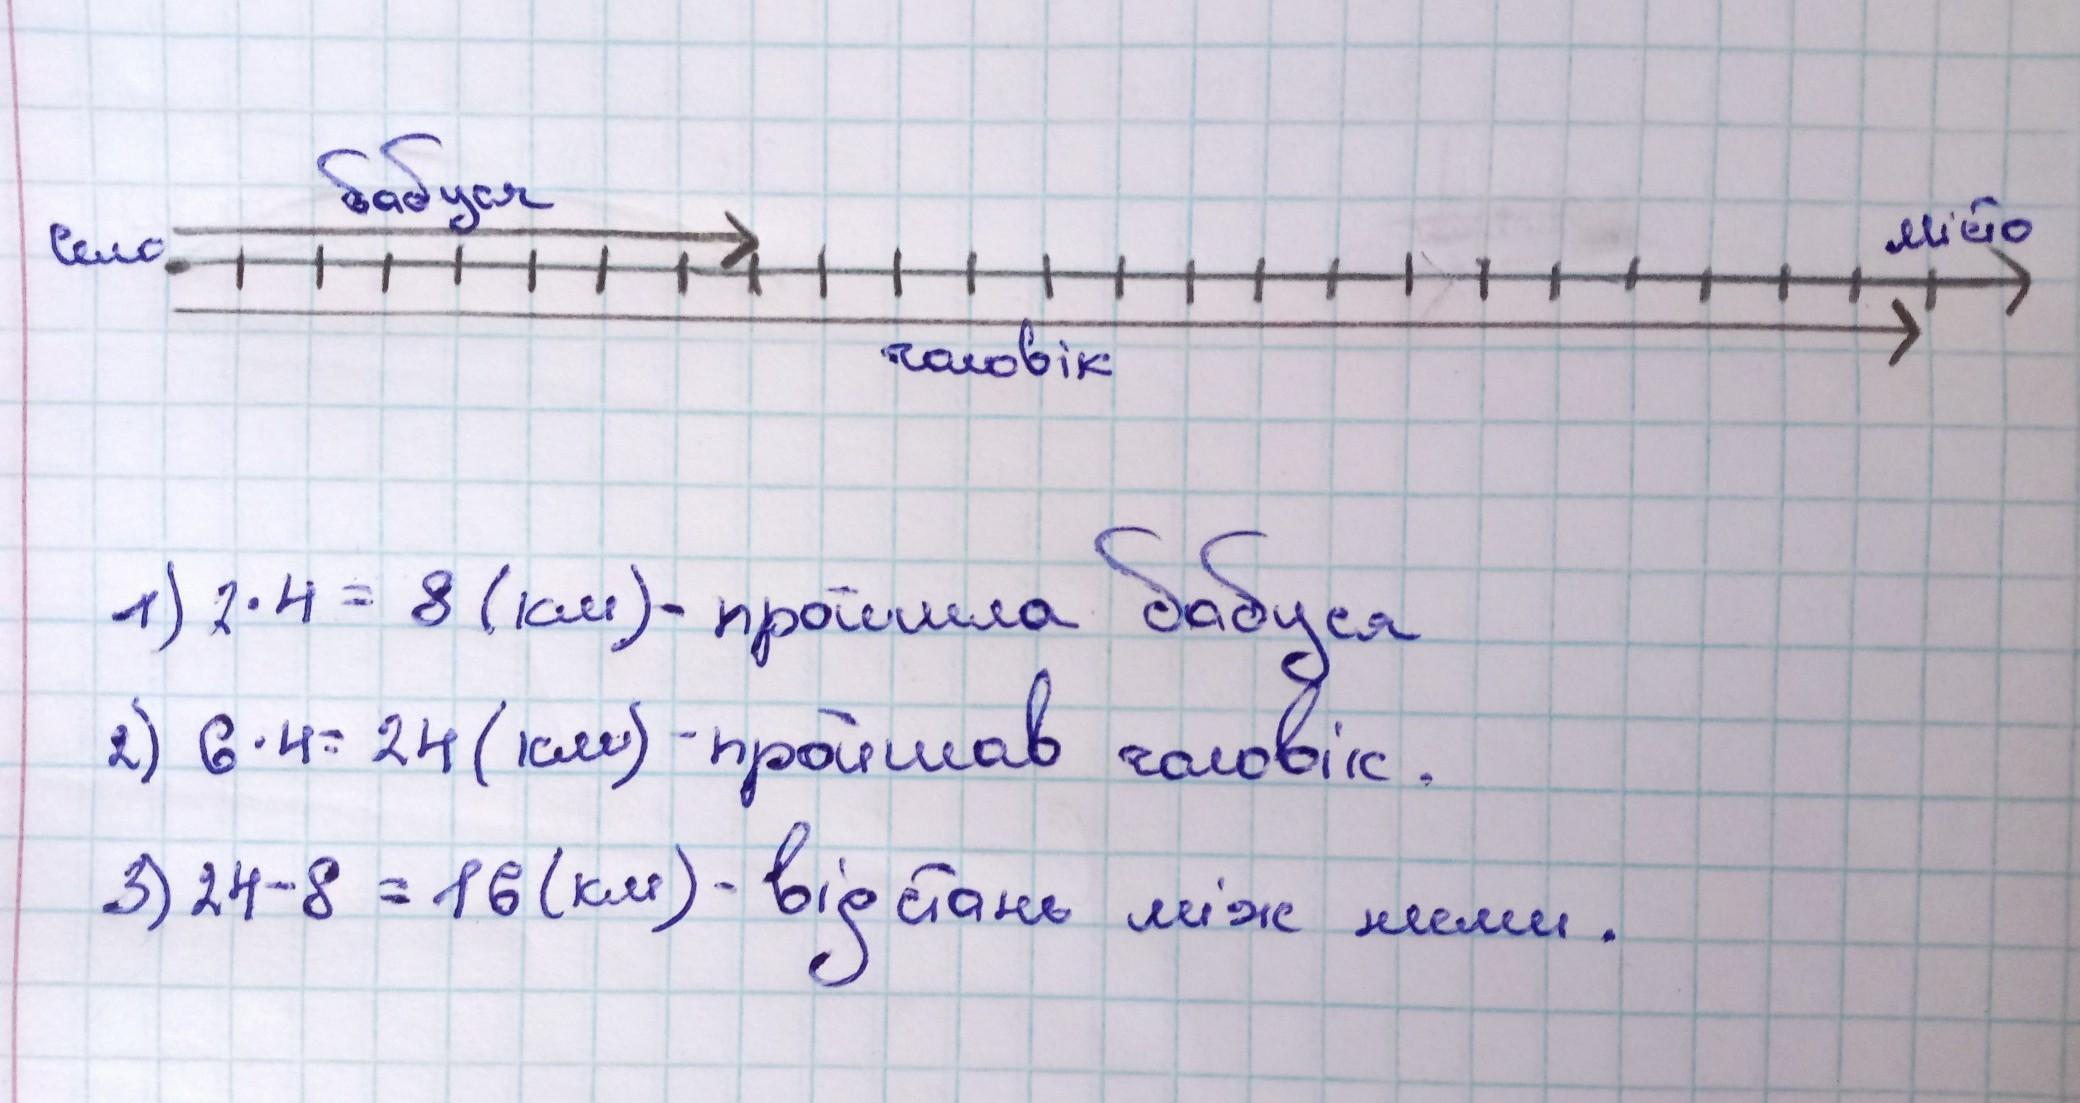 бабуся
Село
місто
чоловік
1) 2·4 = 8 (км) - пройшла бабуся
2) 6·4 = 24 (км) - пройшов чоловік.
3) 24 - 8 = 16 (км) - відстань між ними.